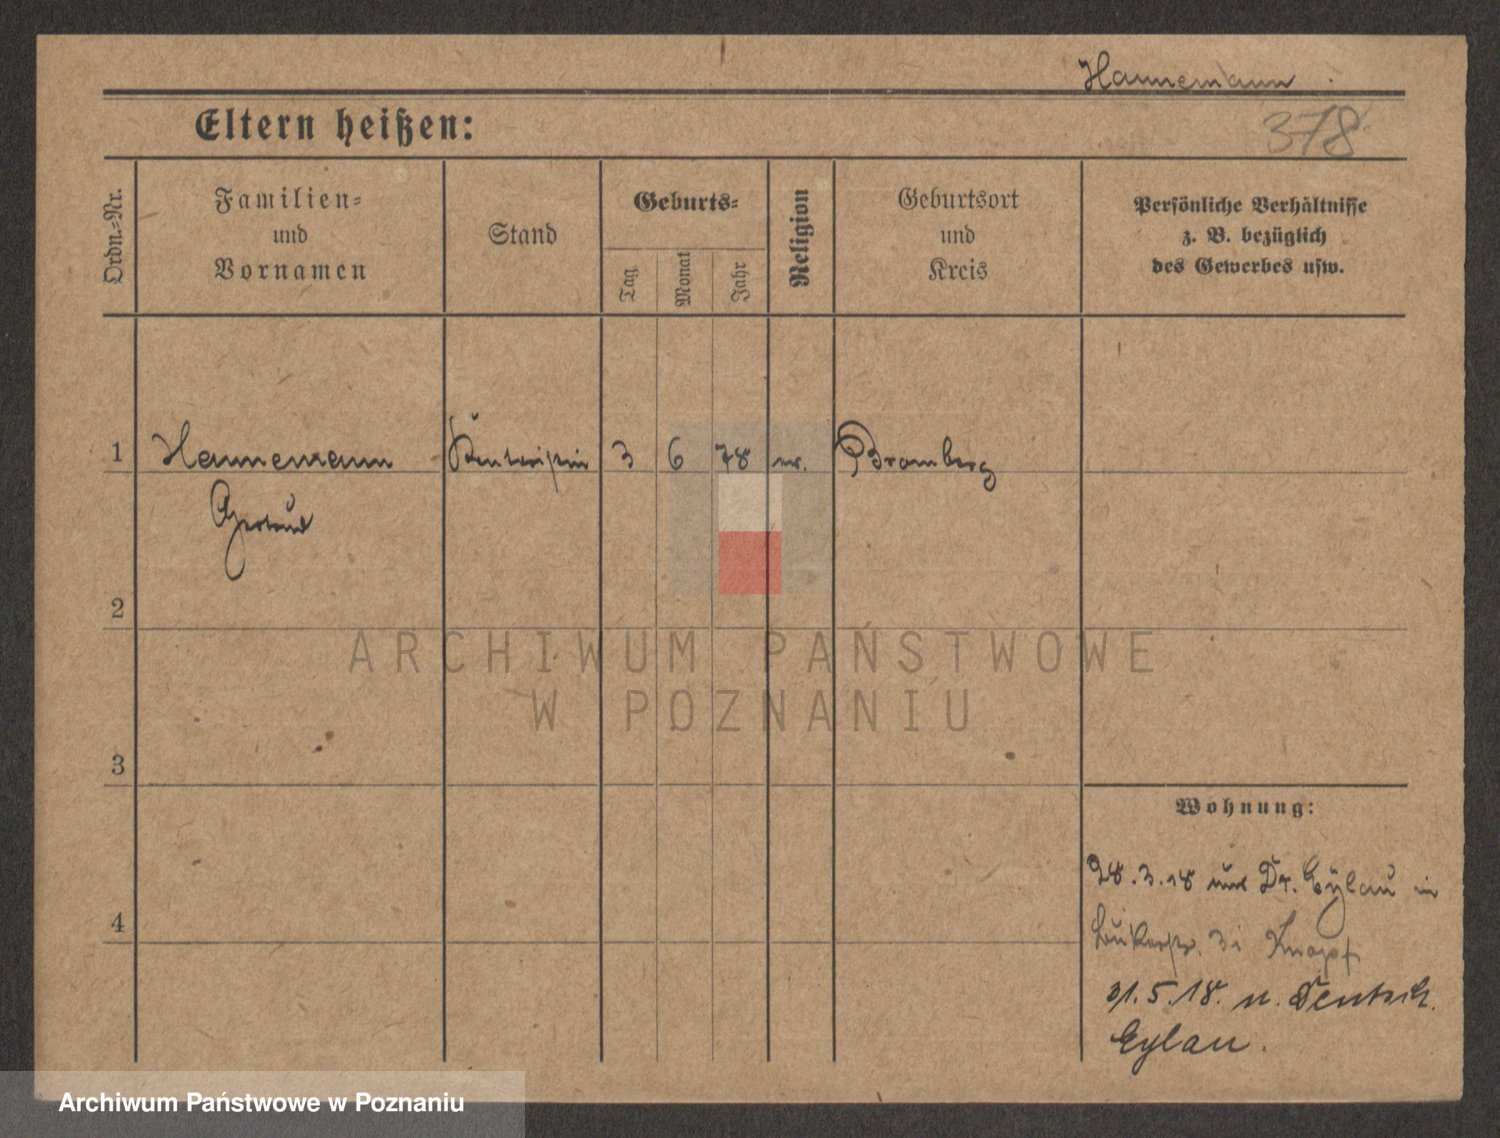 Hannemann
Eltern heißen:
378
Ordn.=Nr.
Familien=
und
Vornamen
Stand
Geburts=
Tag
Monat
Jahr
Religion
Geburtsort
und
Kreis
Persönliche Verhältnisse
z. B. bezüglich
des Gewerbes usw.
1
Hannemann
Gertrud
Rentreisin
3
6
78
ev.
Bromberg
2
ARCHIWUM PAŃSTWOWE
W POZNANIU
3
Wohnung:
28.3.18 und Dt. Eylau in
3 i Knopf
4
31.5.18. n. Deutsch.
Eylau.
Archiwum Państwowe w Poznaniu